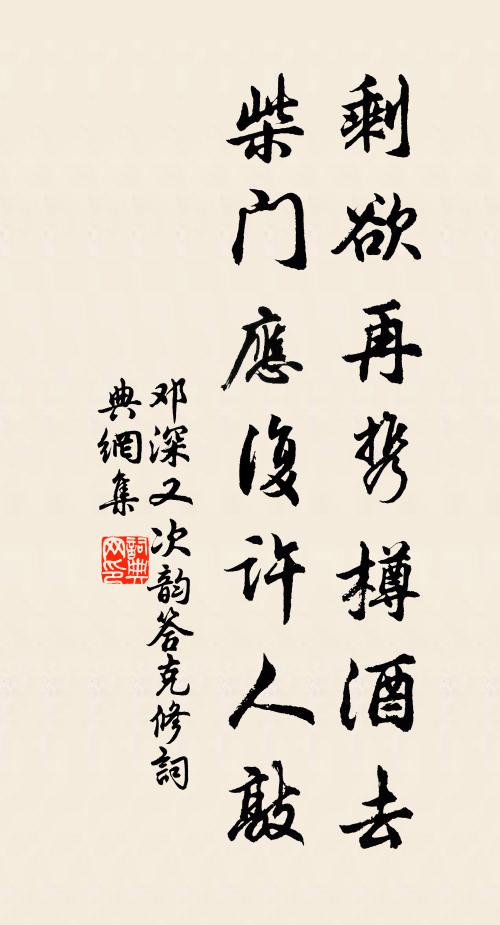 剩欲再携樽酒去
柴门應復许人敲
邓深又次韵答克修詞
典網集
詞典网印